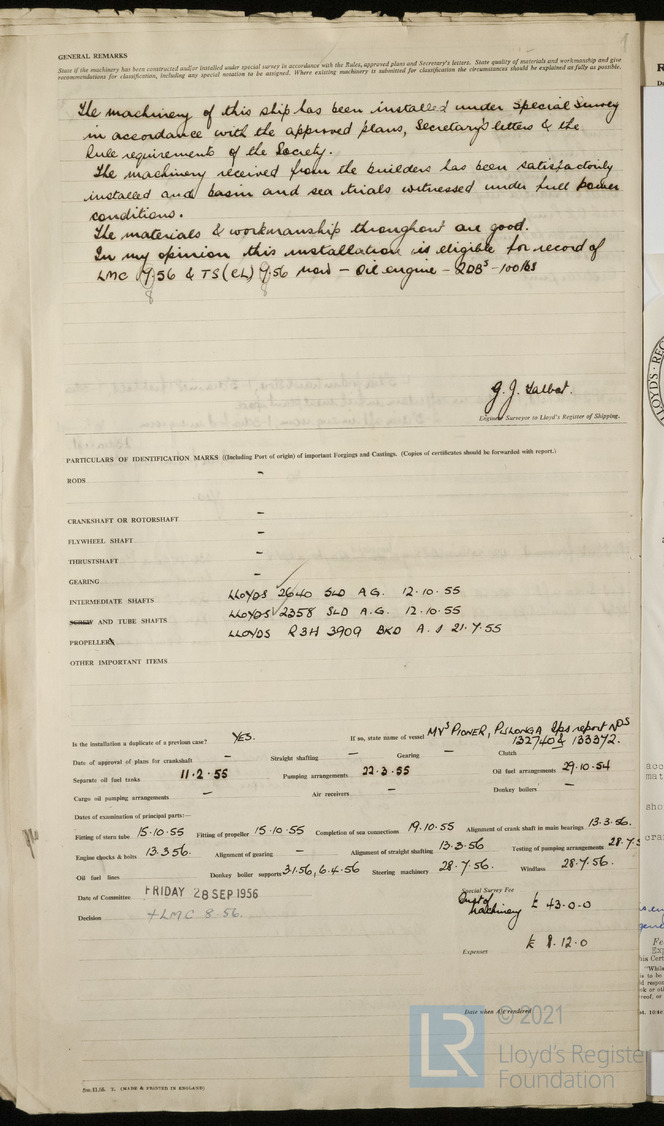 GENERAL REMARKS
State if the machinery has been constructed and/or installed under special survey in accordance with the Rules, approved plans and Secretary's letters. State quality of materials and workmanship and give
recommendations for classification, including any special notation to be assigned. Where existing machinery is submitted for classification the circumstances should be explained as fully as possible.
The machinery of this ship has been installed under Special Survey
in accordance with the approved plans, Secretary's letters & the
Rule requirements of the Society.
The machinery received from the builders has been satisfactorily
installed and basin and sea trials witnessed under full power
conditions.
The materials & workmanship throughout are good.
In my opinion this installation is eligible for record of
LMC 9.56 & TS(CL) 9.56 now - Oil engine - 2DBs - 100 lbs
8 8
G. J. Talbot.
Engineer Surveyor to Lloyd's Register of Shipping.
PARTICULARS OF IDENTIFICATION MARKS ((Including Port of origin) of important Forgings and Castings. (Copies of certificates should be forwarded with report.)
RODS -
CRANKSHAFT OR ROTORSHAFT -
FLYWHEEL SHAFT -
THRUSTSHAFT -
GEARING -
INTERMEDIATE SHAFTS LLOYDS 2640 SLD A.G. 12.10.55
SCREW AND TUBE SHAFTS LLOYDS 2358 SLD A.G. 12.10.55
PROPELLER LLOYDS R3H 3909 BKD A.S 21.7.55
OTHER IMPORTANT ITEMS
Is the installation a duplicate of a previous case? YES. If so, state name of vessel MVs PIONER, report Nos
132740 & 133372.
Date of approval of plans for crankshaft - Straight shafting - Gearing - Clutch
Separate oil fuel tanks 11.2.55 Pumping arrangements 22.3.55 Oil fuel arrangements 29.10.54
Cargo oil pumping arrangements - Air receivers - Donkey boilers -
Dates of examination of principal parts:—
Fitting of stern tube 15.10.55 Fitting of propeller 15.10.55 Completion of sea connections 19.10.55 Alignment of crank shaft in main bearings 13.3.56.
Engine chocks & bolts 13.3.56. Alignment of gearing - Alignment of straight shafting 13.3.56 Testing of pumping arrangements 28.7.5
Oil fuel lines Donkey boiler supports 3.1.56, 6.4.56 Steering machinery 28.7.56. Windlass 28.7.56.
Date of Committee FRIDAY 28 SEP 1956
Decision +LMC 8.56.
Special Survey Fee
machinery £ 43.0.0
Expenses £ 8.12.0
Date when A/c rendered
© 2021
LR
Lloyd's Registe
Foundation
(MADE & PRINTED IN ENGLAND)